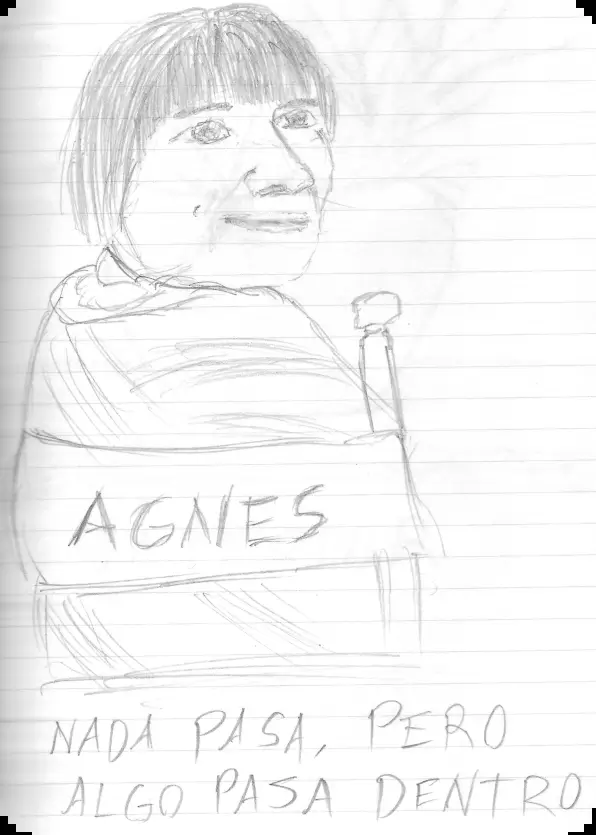 AGNES
NADA PASA, PERO
ALGO PASA DENTRO